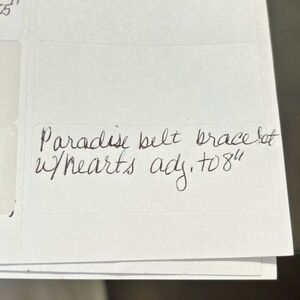 5"
Paradise belt bracelet
w/hearts adj. to 8"